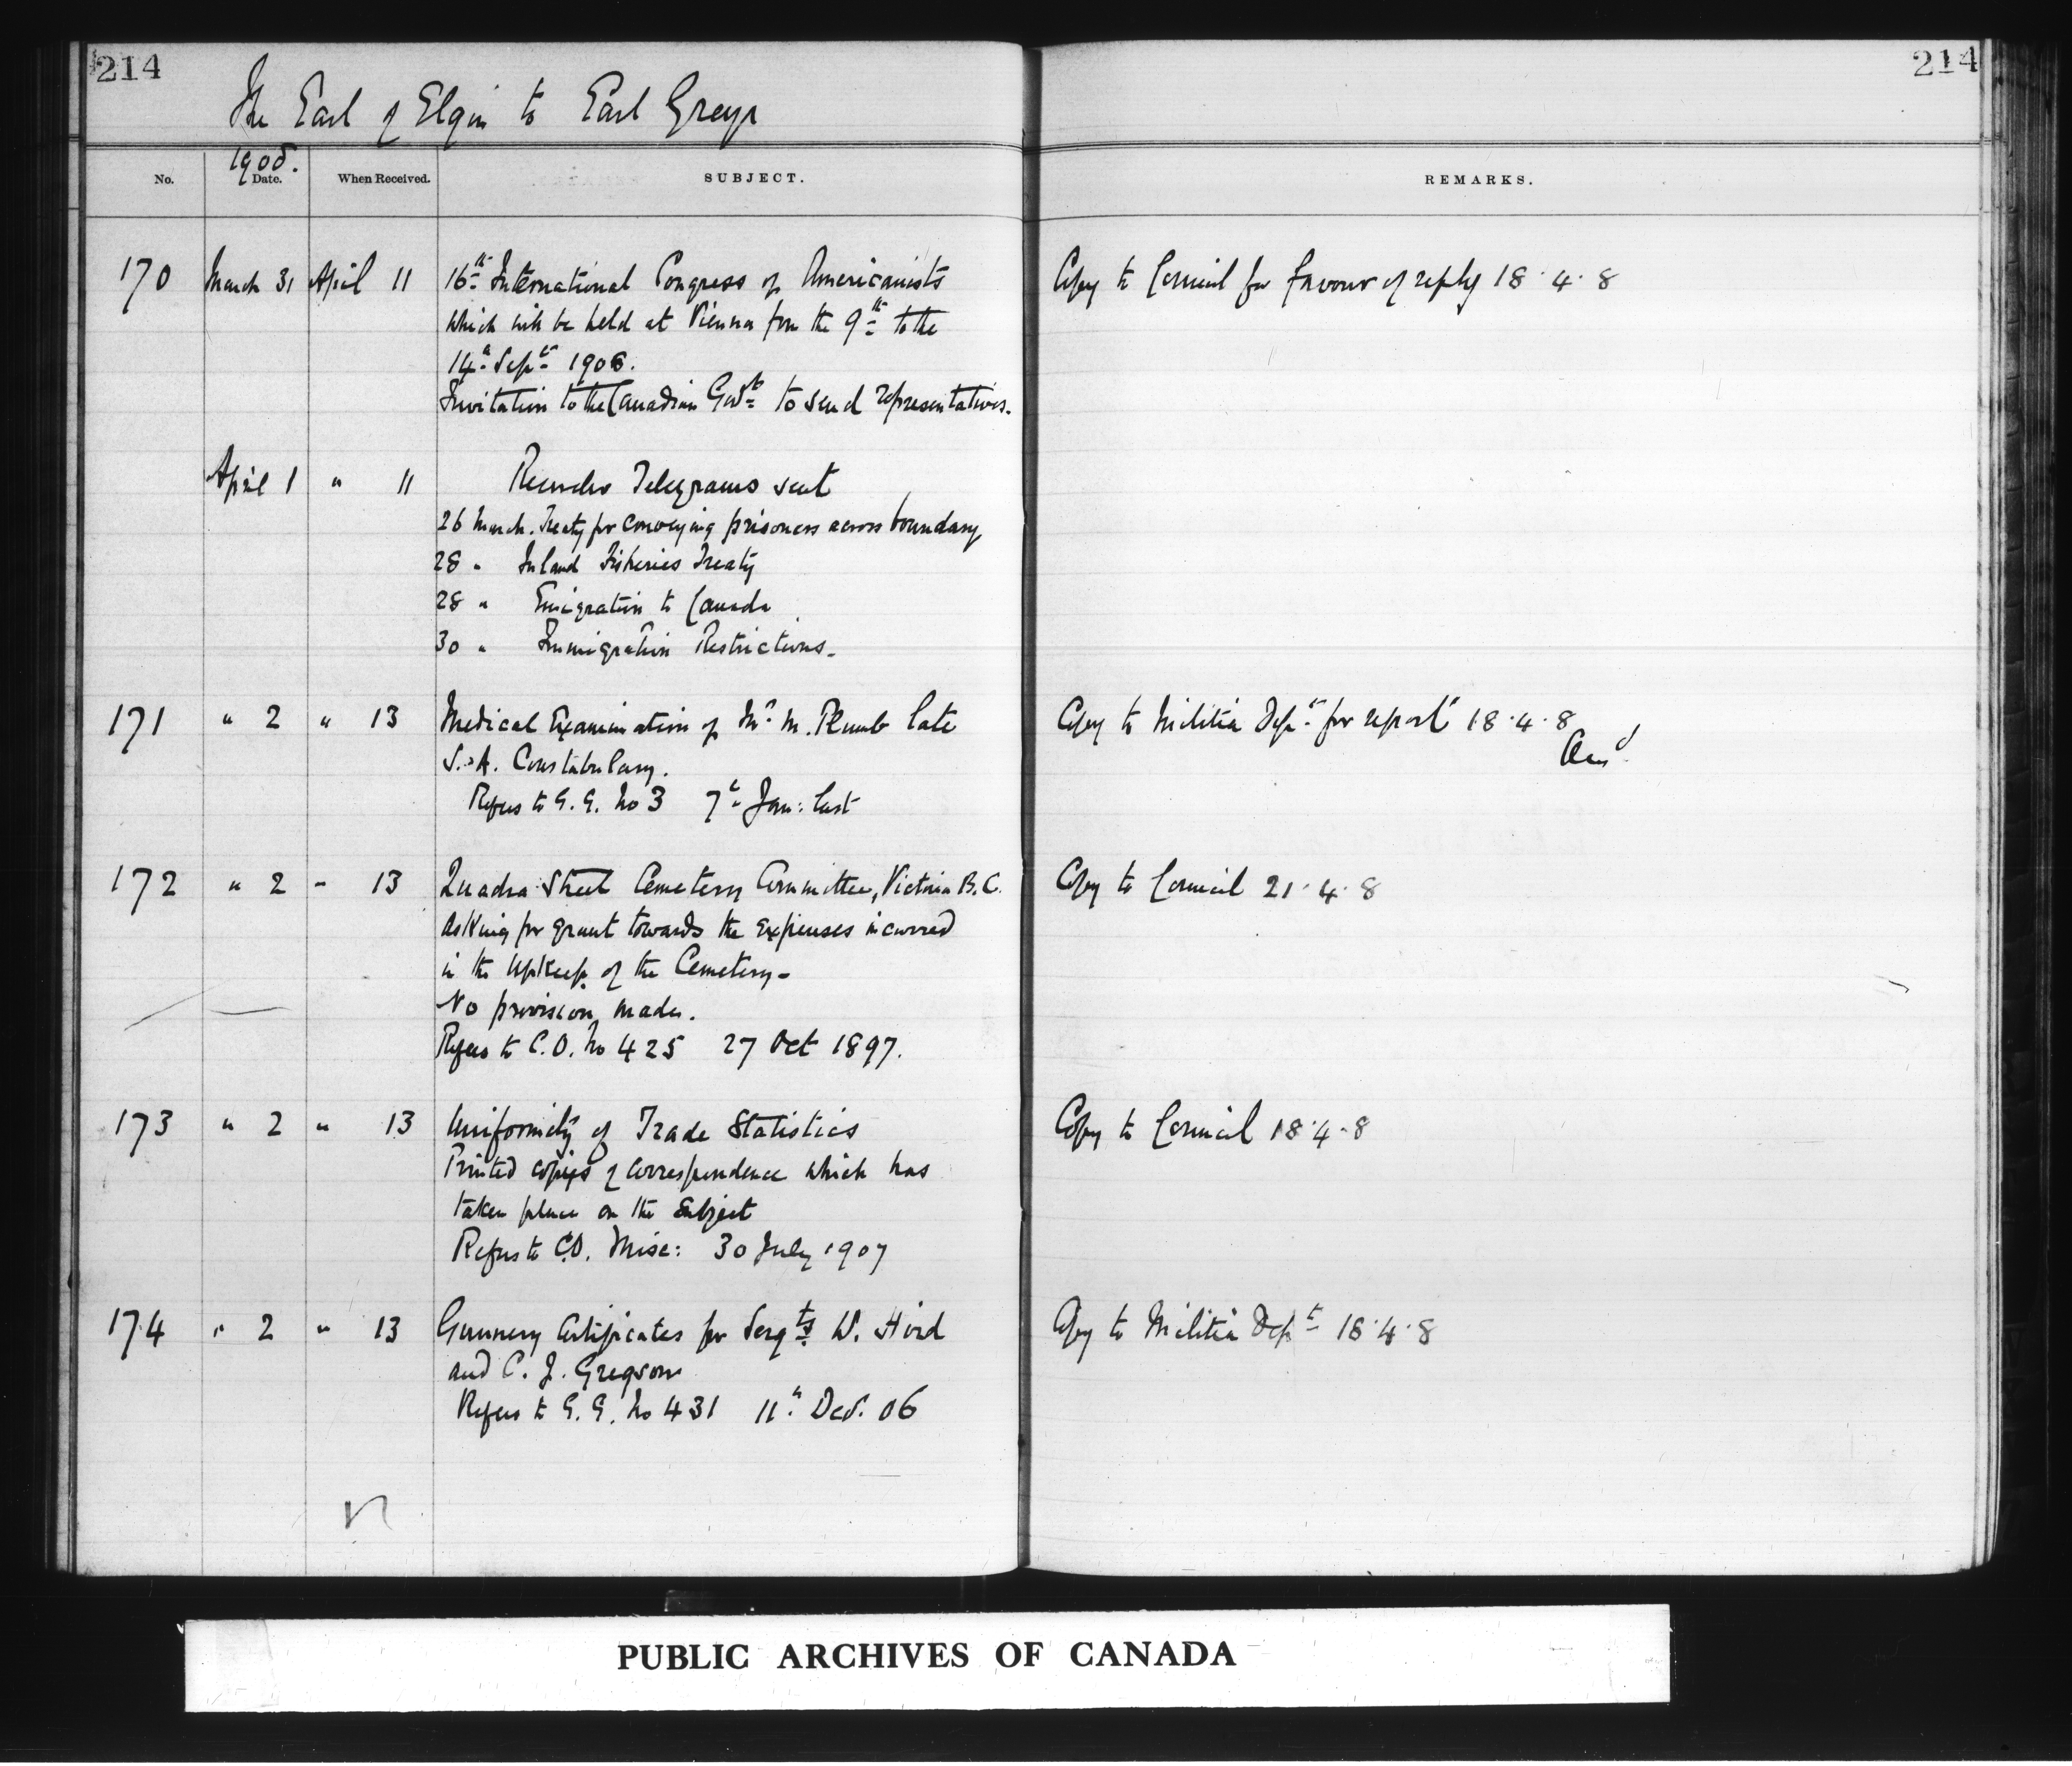 214
214
The Earl of Elgin to Earl Grey
1908.
No. Date. When Received. SUBJECT. REMARKS.
170 March 31 April 11 16th International Congress of Americanists Copy to Council for favour of reply 18.4.8
which will be held at Vienna from the 9th to the
14th Septr 1908.
Invitation to the Canadian Govt to send representatives.
April 1 " 11 Telegrams sent
26 March. Treaty for conveying prisoners across boundary
28 " Inland Fisheries Treaty
28 " Emigration to Canada
30 " Immigration Restrictions.
171 " 2 " 13 Medical Examination of Mr M. Plumb late Copy to Militia Dept for report 18.4.8
S.A. Constabulary. Ansd
Refers to G.G. No 3 7th Jan: last
172 " 2 " 13 Quadra Street Cemetery Committee, Victoria B.C. Copy to Council 21.4.8
asking for grant towards the expenses incurred
in the upkeep of the Cemetery.
No provision made.
Refers to C.O. No 425 27 Oct 1897.
173 " 2 " 13 Uniformity of Trade Statistics Copy to Council 18.4.8
Printed copies of correspondence which has
taken place on the subject
Refers to C.O. Misc: 30 July 1907
174 " 2 " 13 Gunnery Certificates for Sergts W. Hird Copy to Militia Dept 18.4.8
and C. J. Gregson
Refers to G.G. No 431 11th Decr. 06
PUBLIC ARCHIVES OF CANADA